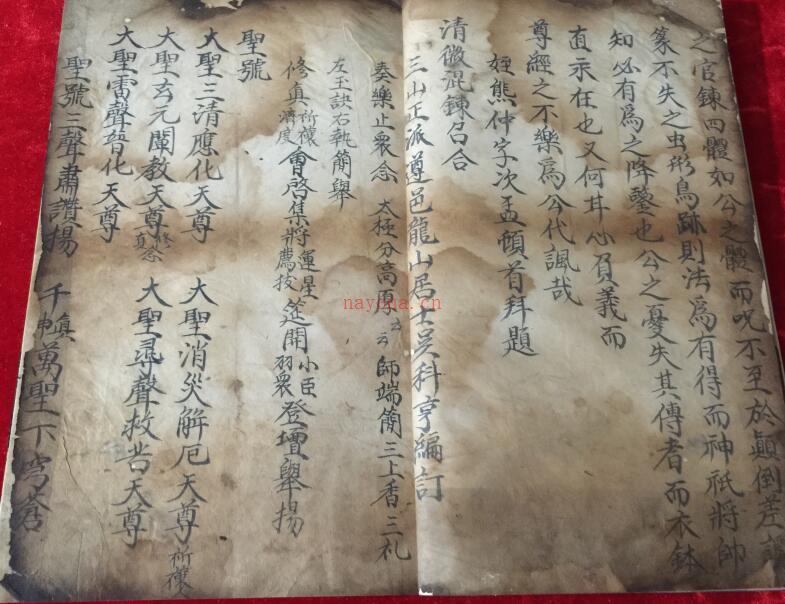 之官鍊四體如公之體而呪不至於顛倒差誤
篆不失之虫形鳥跡則法為有得而神祇將帥
知必有為之降鑒也公之憂失其傳者而衣鉢
直示在也又何其心負義而
尊經之不樂為公代諷哉
姪熊仲字次孟頓首拜題
清微混鍊召合
三山正派遵邑龍山居士吴科亨編訂
奏樂止衆念 太極分高厚云云 師端簡三上香三礼
左玉訣右執簡舉
修真祈禳濟度會啓集將運星薦拔筵開小臣羽衆登壇舉揚
聖號
大聖三清應化天尊 大聖消災解厄天尊祈禳
大聖玄元闡教天尊修真念 大聖尋聲救苦天尊
大聖雷聲普化天尊
聖號三聲肅讚揚 千真萬聖下穹蒼
naycha.cn